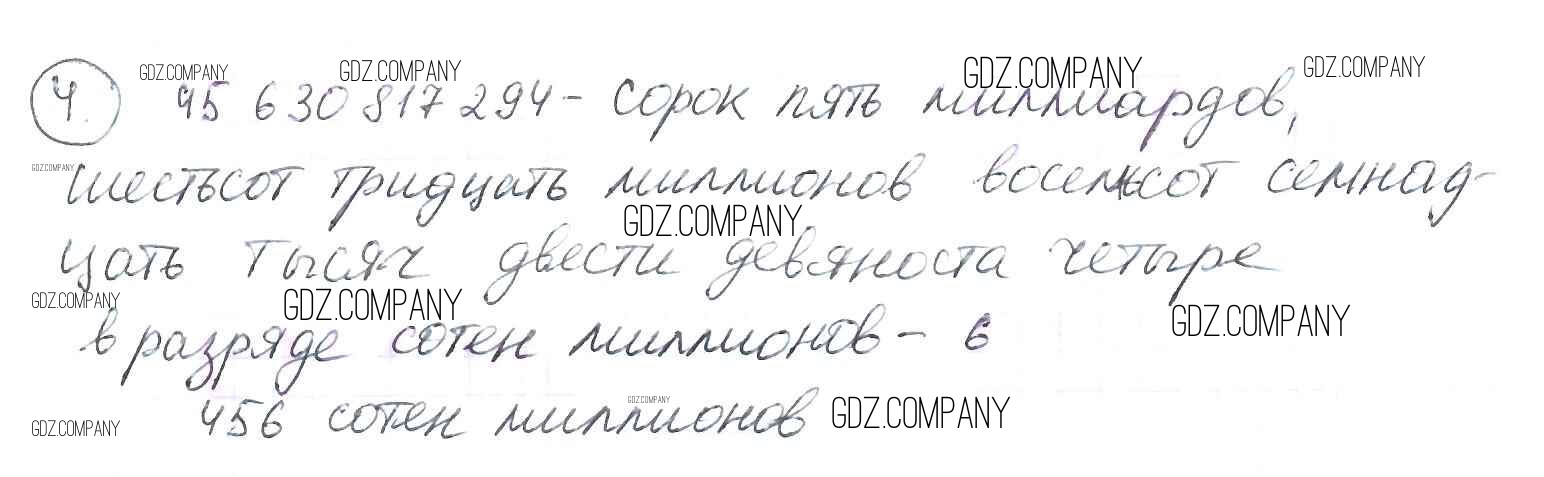 4. 45 630 817 294 - сорок пять миллиардов,
шестьсот тридцать миллионов восемьсот семнад-
цать тысяч двести девяноста четыре
в разряде сотен миллионов - 6
456 сотен миллионов
GDZ.COMPANY
GDZ.COMPANY
GDZ.COMPANY
GDZ.COMPANY
GDZ.COMPANY
GDZ.COMPANY
GDZ.COMPANY
GDZ.COMPANY
GDZ.COMPANY
GDZ.COMPANY
GDZ.COMPANY
GDZ.COMPANY